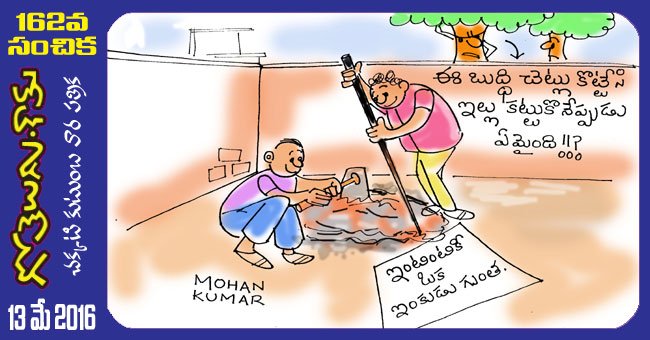 162వ
సంచిక
గోతెలుగు.కామ్
13 మే 2016
ఈ బుద్ధి చెట్లు కొట్టేసి
ఇల్లు కట్టుకొనేప్పుడు
ఏమైంది !!?
ఇంటింటికో
ఒక
ఇంకుడు గుంత.
MOHAN
KUMAR